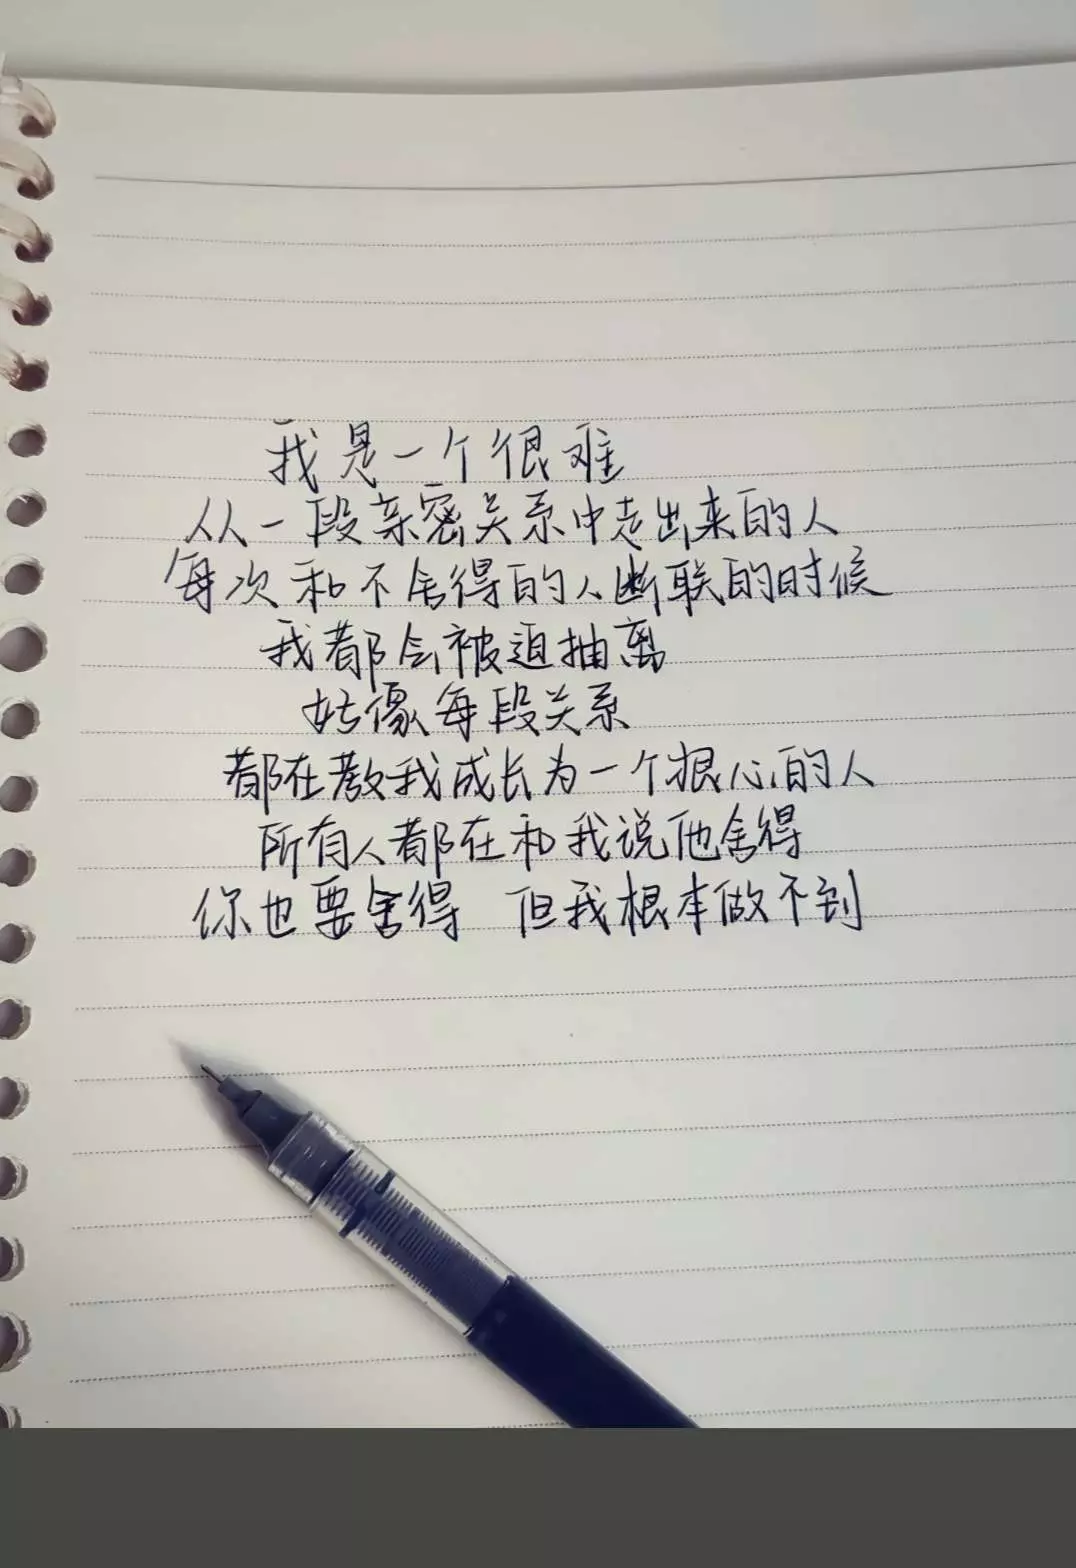 我是一个很难
从一段亲密关系中走出来的人
每次和不舍得的人断联的时候
我都会被迫抽离
好像每段关系
都在教我成长为一个狠心的人
所有人都在和我说他舍得
你也要舍得 但我根本做不到